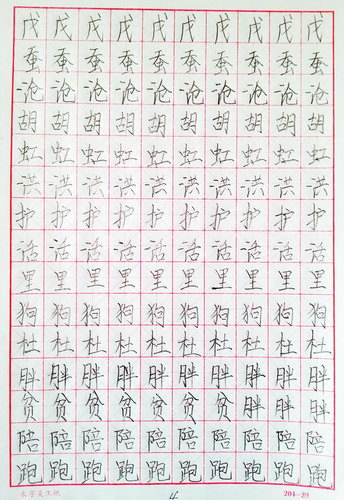 戊戊戊戊戊戊戊戊戊戊
蚕蚕蚕蚕蚕蚕蚕蚕蚕蚕
沧沧沧沧沧沧沧沧沧沧
胡胡胡胡胡胡胡胡胡胡
虹虹虹虹虹虹虹虹虹虹
洪洪洪洪洪洪洪洪洪洪
护护护护护护护护护护
活活活活活活活活活活
里里里里里里里里里里
狗狗狗狗狗狗狗狗狗狗
杜杜杜杜杜杜杜杜杜杜
胖胖胖胖胖胖胖胖胖胖
贫贫贫贫贫贫贫贫贫贫
陪陪陪陪陪陪陪陪陪陪
跑跑跑跑跑跑跑跑跑跑
204-20